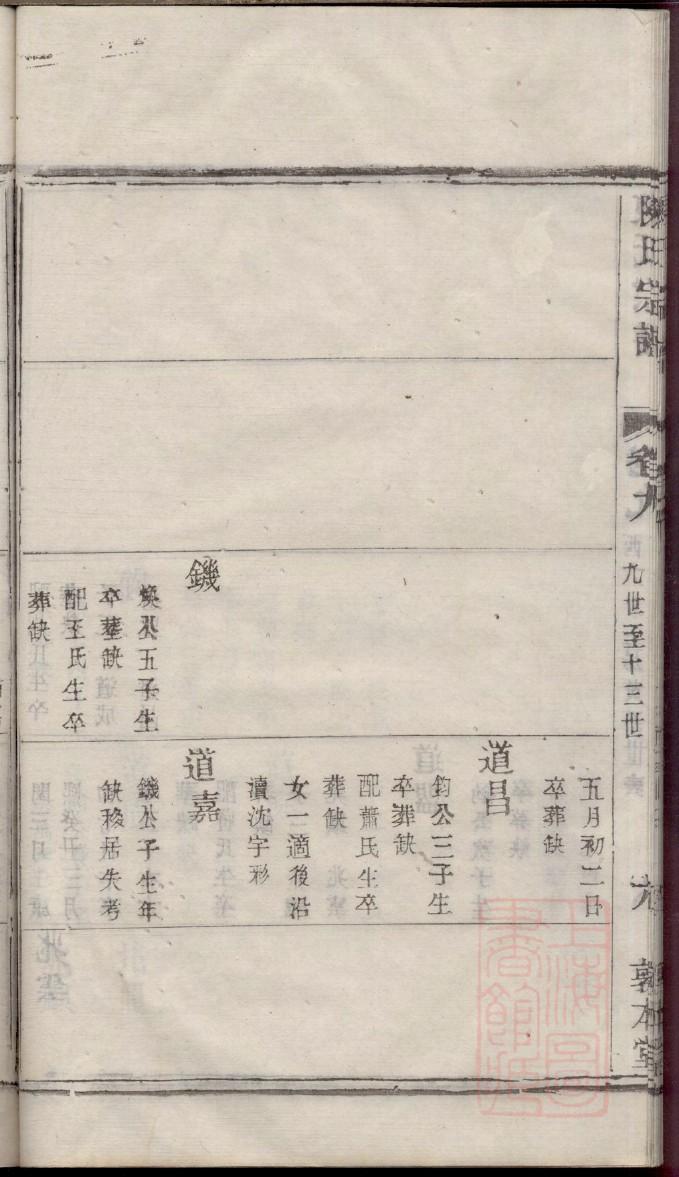 陳氏宗譜
卷九
九世至十三世
九
敦本堂
鐖
煥公五子生
卒葬缺
配王氏生卒
葬缺
五月初二日
卒葬缺
道昌
鈞公三子生
卒葬缺
配蕭氏生卒
葬缺
女一適後沿
瀆沈字彩
道嘉
鐖公子生年
缺移居失考